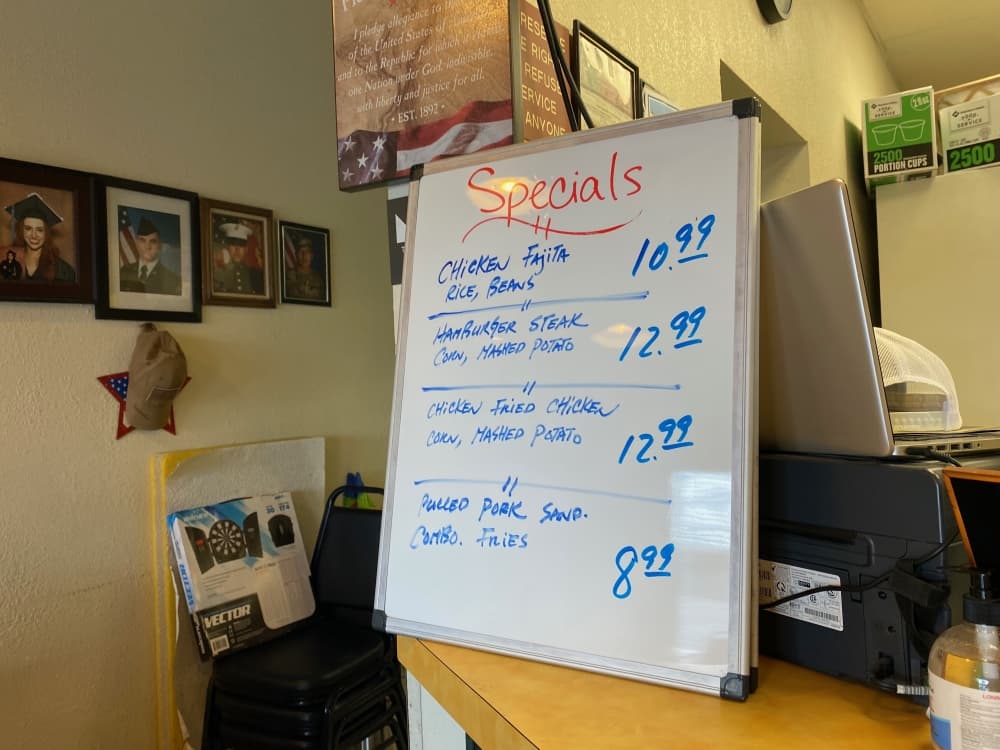 I pledge allegiance to the
of the United States of America
and to the Republic for which it stands
one Nation under God, indivisible,
with liberty and justice for all.
• EST. 1892 •
RESE
E RIGH
REFUSE
ERVICE
ANYONE
Specials
CHICKEN FAJITA 10.99
RICE, BEANS
HAMBURGER STEAK 12.99
CORN, MASHED POTATO
CHICKEN FRIED CHICKEN
CORN, MASHED POTATO 12.99
PULLED PORK SAND.
COMBO. FRIES 8.99
2500
PORTION CUPS
2500
VECTOR